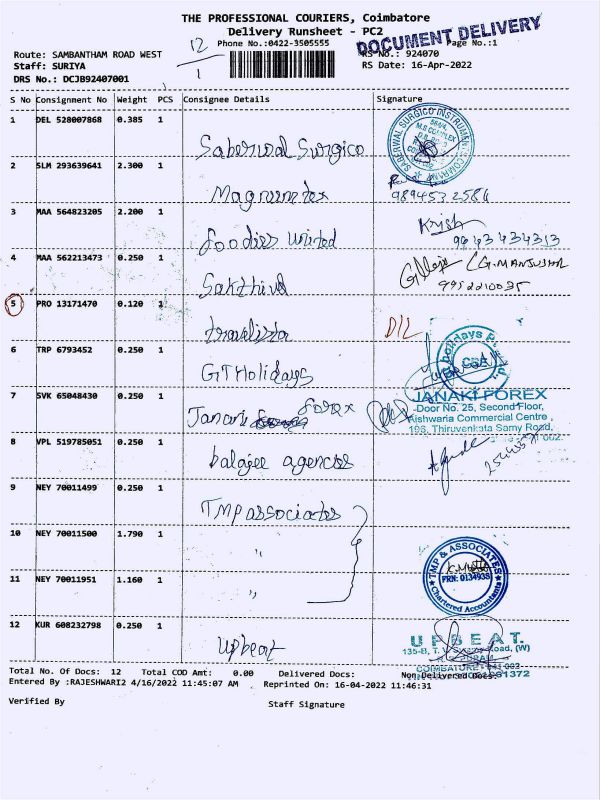 THE PROFESSIONAL COURIERS, Coimbatore
Delivery Runsheet - PC2
DOCUMENT DELIVERY
12
1
Phone No.:0422-3505555
Page No.:1
Route: SAMBANTHAM ROAD WEST
RS No.: 924070
Staff: SURIYA
RS Date: 16-Apr-2022
DRS No.: DCJB92407001
S No Consignment No Weight PCS Consignee Details Signature
1 DEL 528007868 0.385 1
Saberwal Surgico
SABERWAL SURGICO INSTRUMENT COMPANY
2 SLM 293639641 2.300 1
Magnumtex
9894532586
3 MAA 564823205 2.200 1
foodies united
Krish
9643434313
4 MAA 562213473 0.250 1
Sakthivel
(G.MANJUSHA
9952210035
5 PRO 13171470 0.120 1
travelista
D/L
6 TRP 6793452 0.250 1
GT Holidays
7 SVK 65048430 0.250 1
Janani forex
JANAKI FOREX
Door No. 25, Second Floor,
Aishwaria Commercial Centre,
195, Thiruvenkata Samy Road,
8 VPL 519785051 0.250 1
balajee agencies
9 NEY 70011499 0.250 1
TMP associates
10 NEY 70011500 1.790 1
"
11 NEY 70011951 1.160 1
"
TMP & ASSOCIATES
FRN: 013493S
Chartered Accountants
12 KUR 608232798 0.250 1
Upbeat
UPBEAT.
135-B, T. V. Swamy Road, (W)
Total No. Of Docs: 12 Total COD Amt: 0.00 Delivered Docs: Non Delivered Docs:
Entered By :RAJESHWARI2 4/16/2022 11:45:07 AM Reprinted On: 16-04-2022 11:46:31
Verified By
Staff Signature